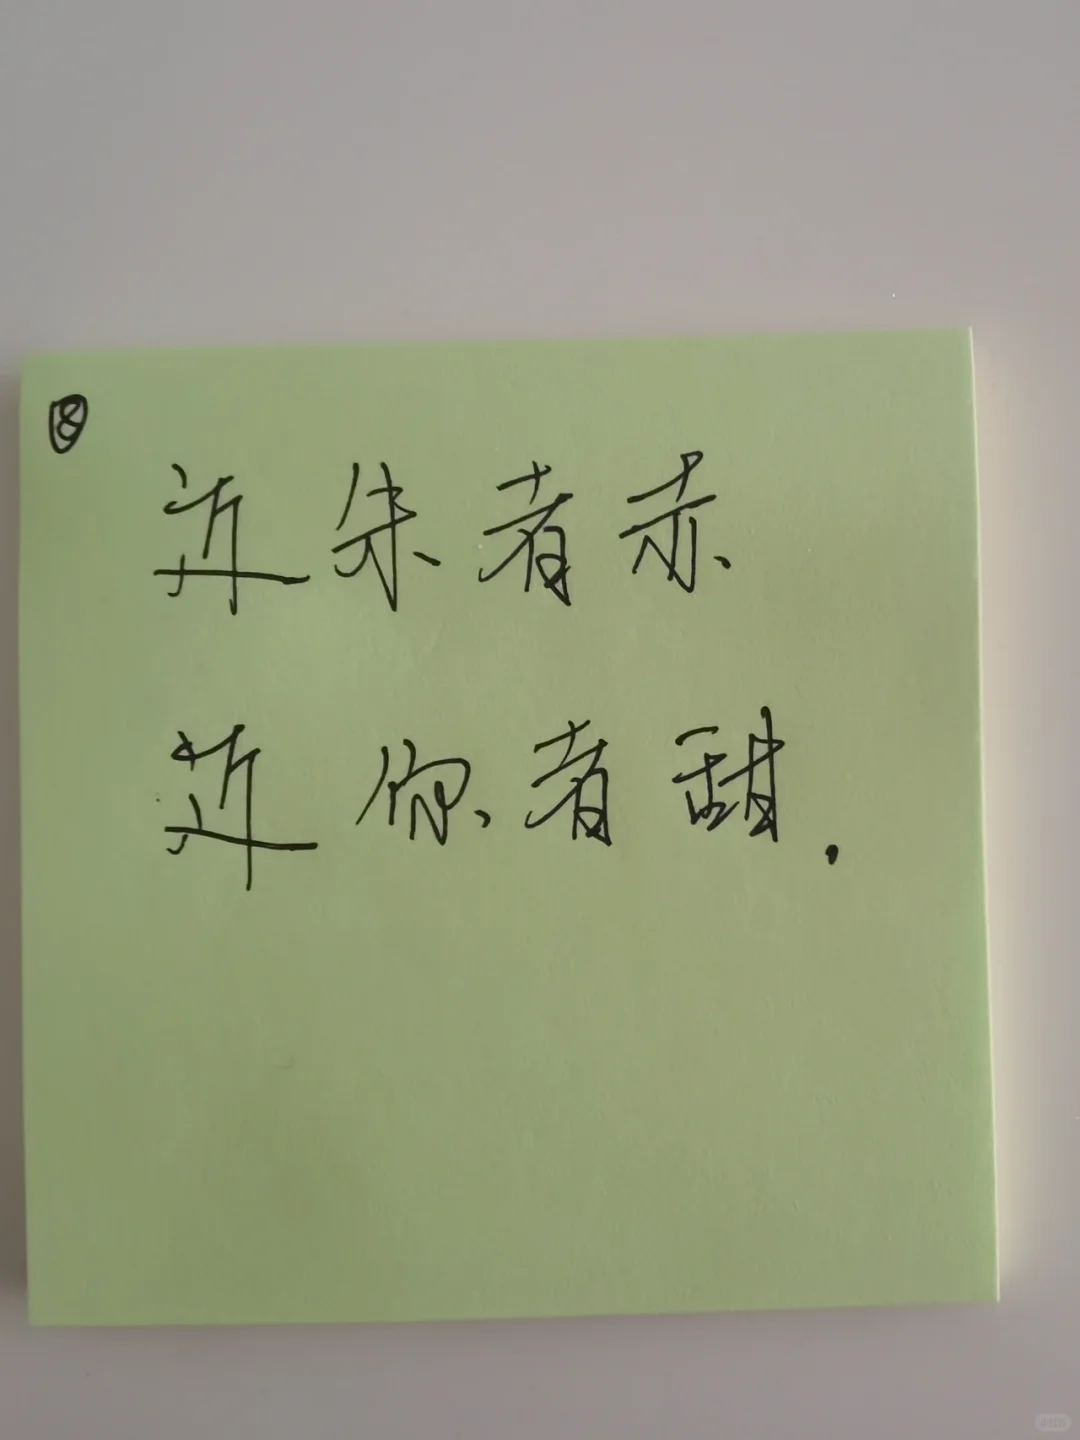 ⑧
近朱者赤
近你者甜.